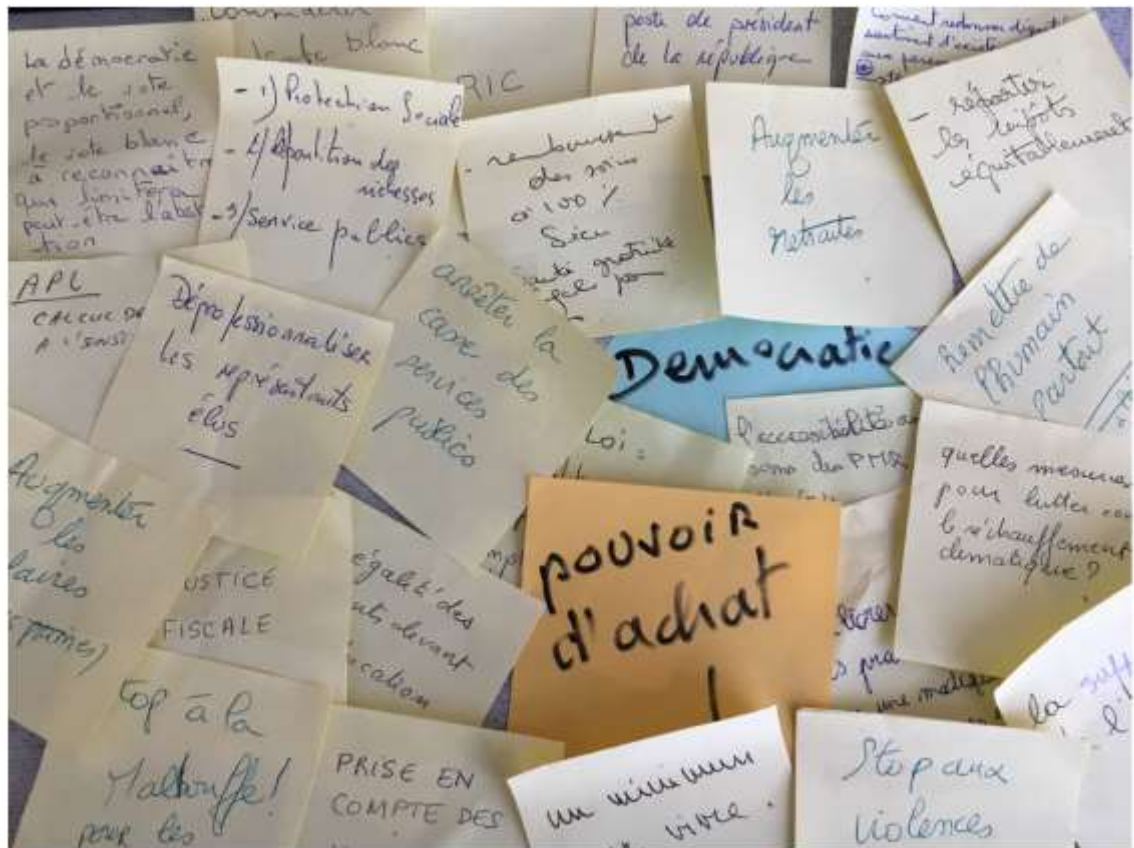 La démocratie
et le vote
proportionnel,
le vote blanc
à reconnaitre
qui limitera
peut-être l'abst
tion
blanc
RIC
poste de président
de la république
- 1) Protection Sociale
- 2) Répartition des
richesses
- 3) Service publics
- remboursement
des soins
à 100 %
Sécu
gratuite
Augmenter
les
retraites
- réporter
les impôts
équitablement
APL
CALCUL DE
Déprofessionnaliser
les représentants
élus
arrêter la
casse des
services
publics
Democratie
Remettre de
l'humain
partout
Loi :
l'accessibilité
des PMR
quelles mesures
pour lutter
le réchauffement
climatique ?
Augmenter
les
laires
USTICE
FISCALE
égalité des
devant
ucation
pouvoir
d'achat
!
une
la
top à la
Malbouffe !
pour les
PRISE EN
COMPTE DES
un minimum
vivre.
Stop aux
violences